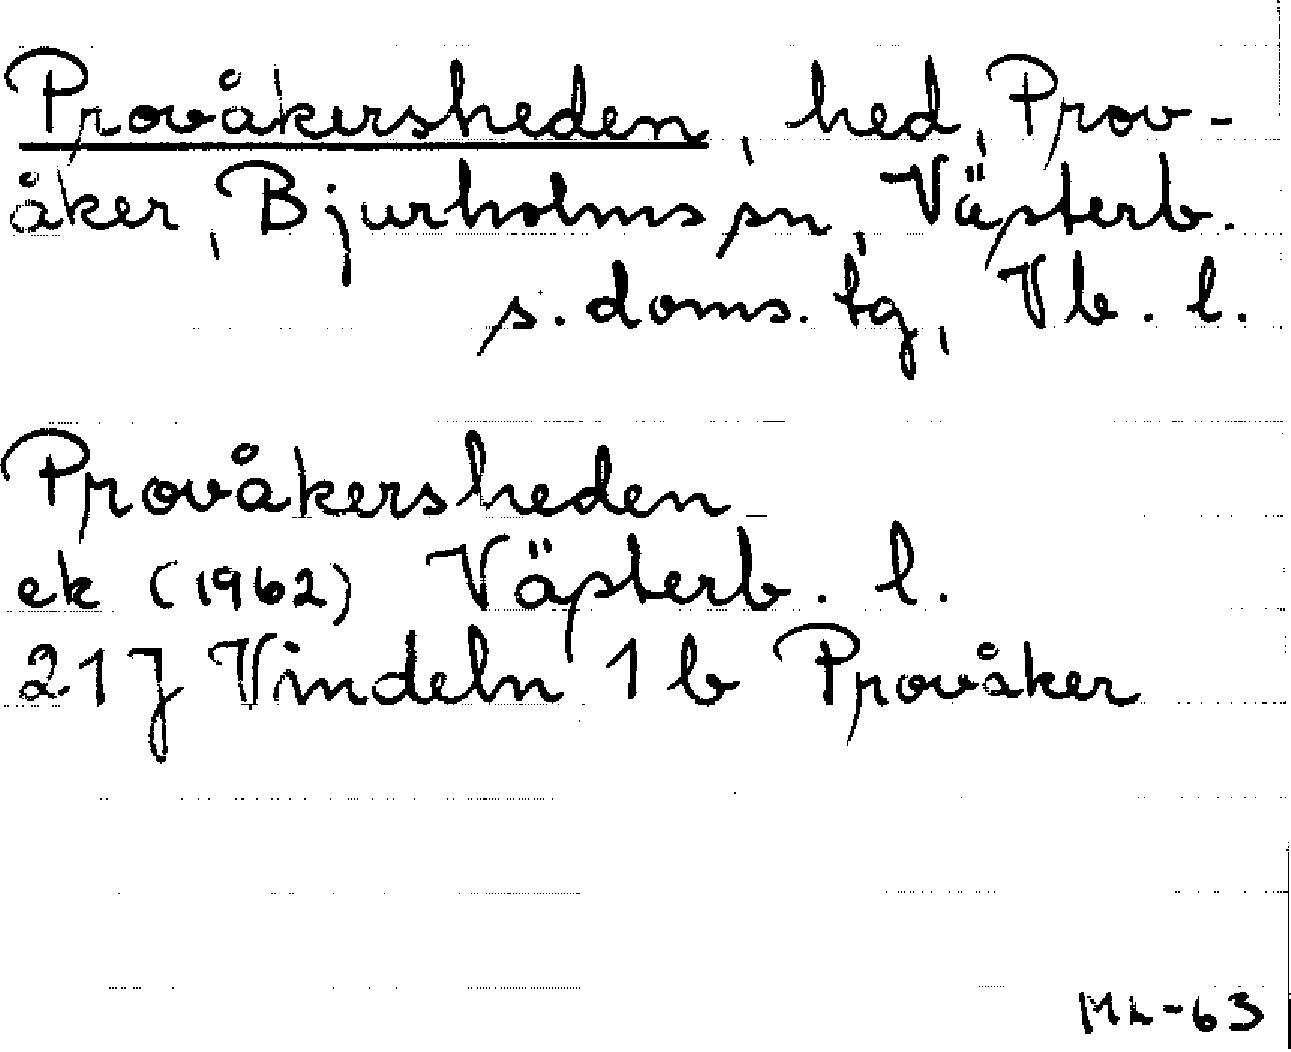 Provåkersheden, hed, Prov-
åker, Bjurholms sn, Västerb.
s. doms. tg, Vb. l.
Provåkersheden
ek (1962) Västerb. l.
21J Vindeln 1b Provåker
ML-63